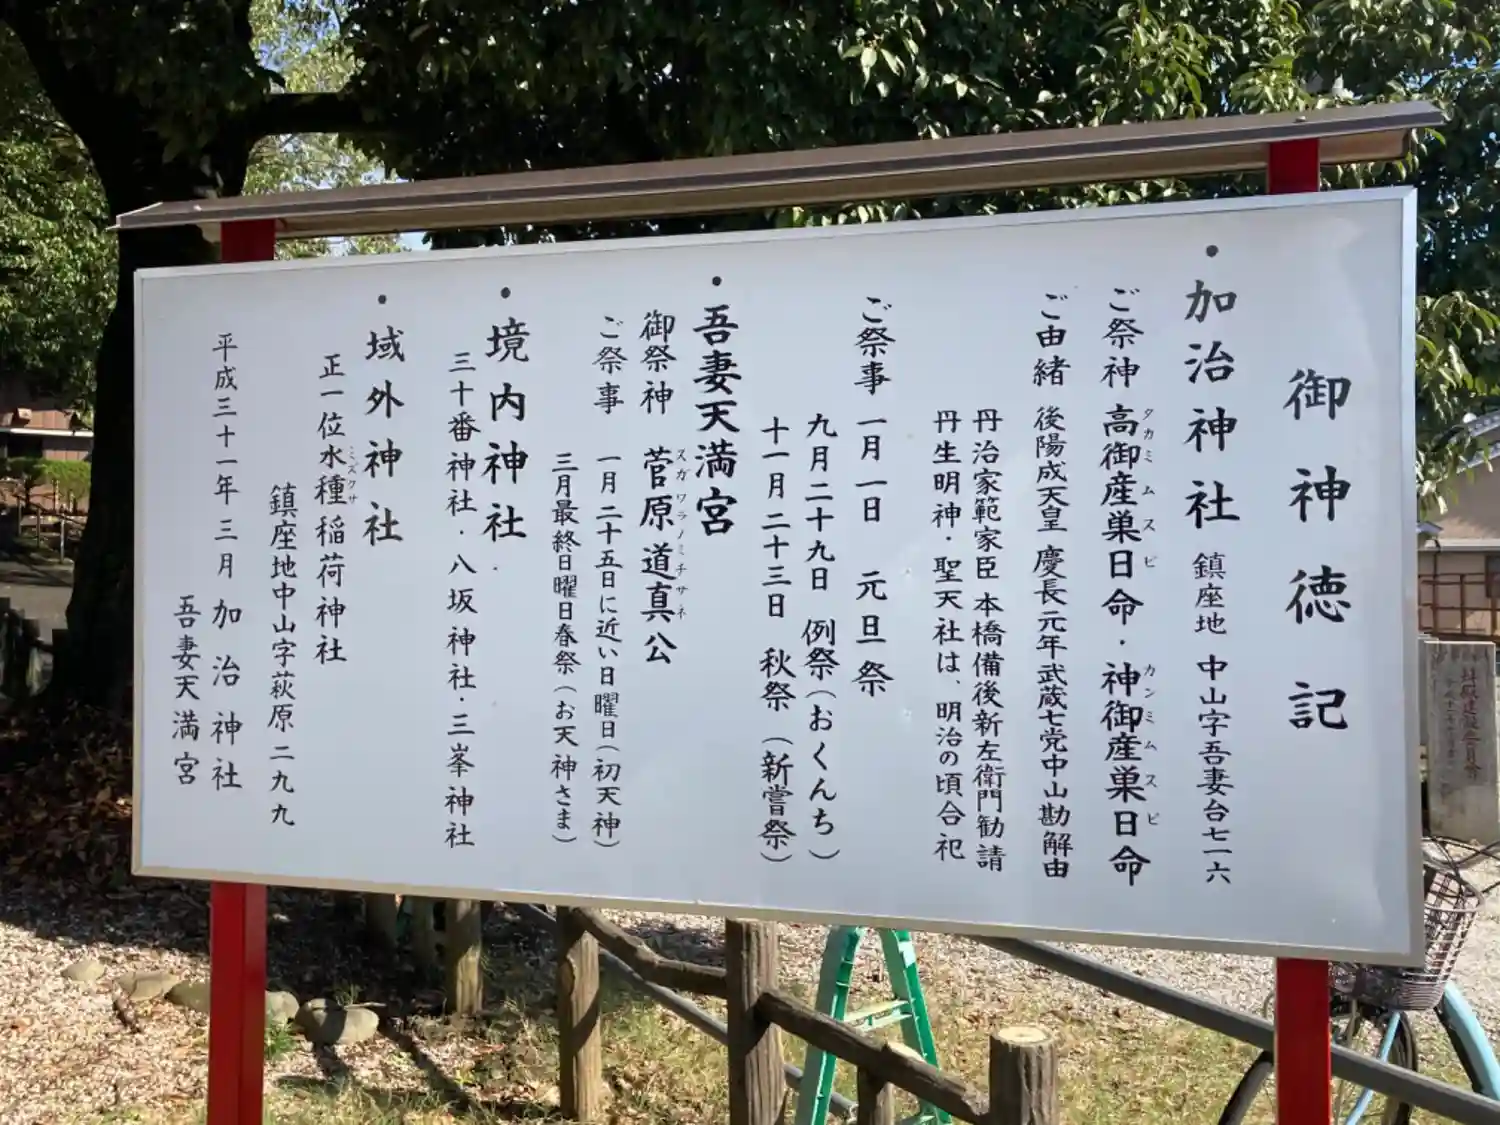 御神徳記
・加治神社 鎮座地 中山字吾妻台七一六
ご祭神 高御産巣日命・神御産巣日命
タカミムスビ カンミムスビ
ご由緒 後陽成天皇 慶長元年武蔵七党中山勘解由
丹治家範家臣 本橋備後新左衛門勧請
丹生明神・聖天社は、明治の頃合祀
ご祭事 一月一日 元旦祭
九月二十九日 例祭(おくんち)
十一月二十三日 秋祭(新嘗祭)
・吾妻天満宮
御祭神 菅原道真公
スガワラノミチサネ
ご祭事 一月二十五日に近い日曜日(初天神)
三月最終日曜日春祭(お天神さま)
・境内神社
三十番神社・八坂神社・三峯神社
・域外神社
正一位水種稲荷神社
ミズクサ
鎮座地中山字萩原二九九
平成三十一年三月 加治神社
吾妻天満宮